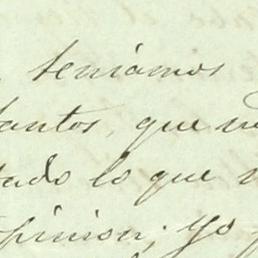 teníamos
antos, que
tado lo que
opinion; yo